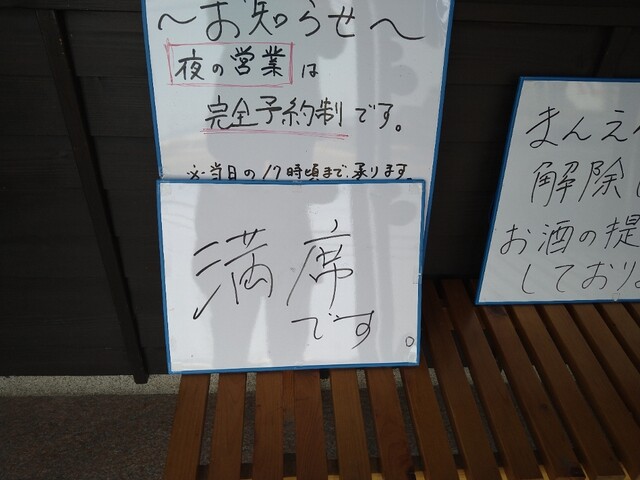 ～お知らせ～
夜の営業は
完全予約制です。
※当日の17時頃まで、承ります。
満席
です。
まんえ
解除
お酒の提
しており